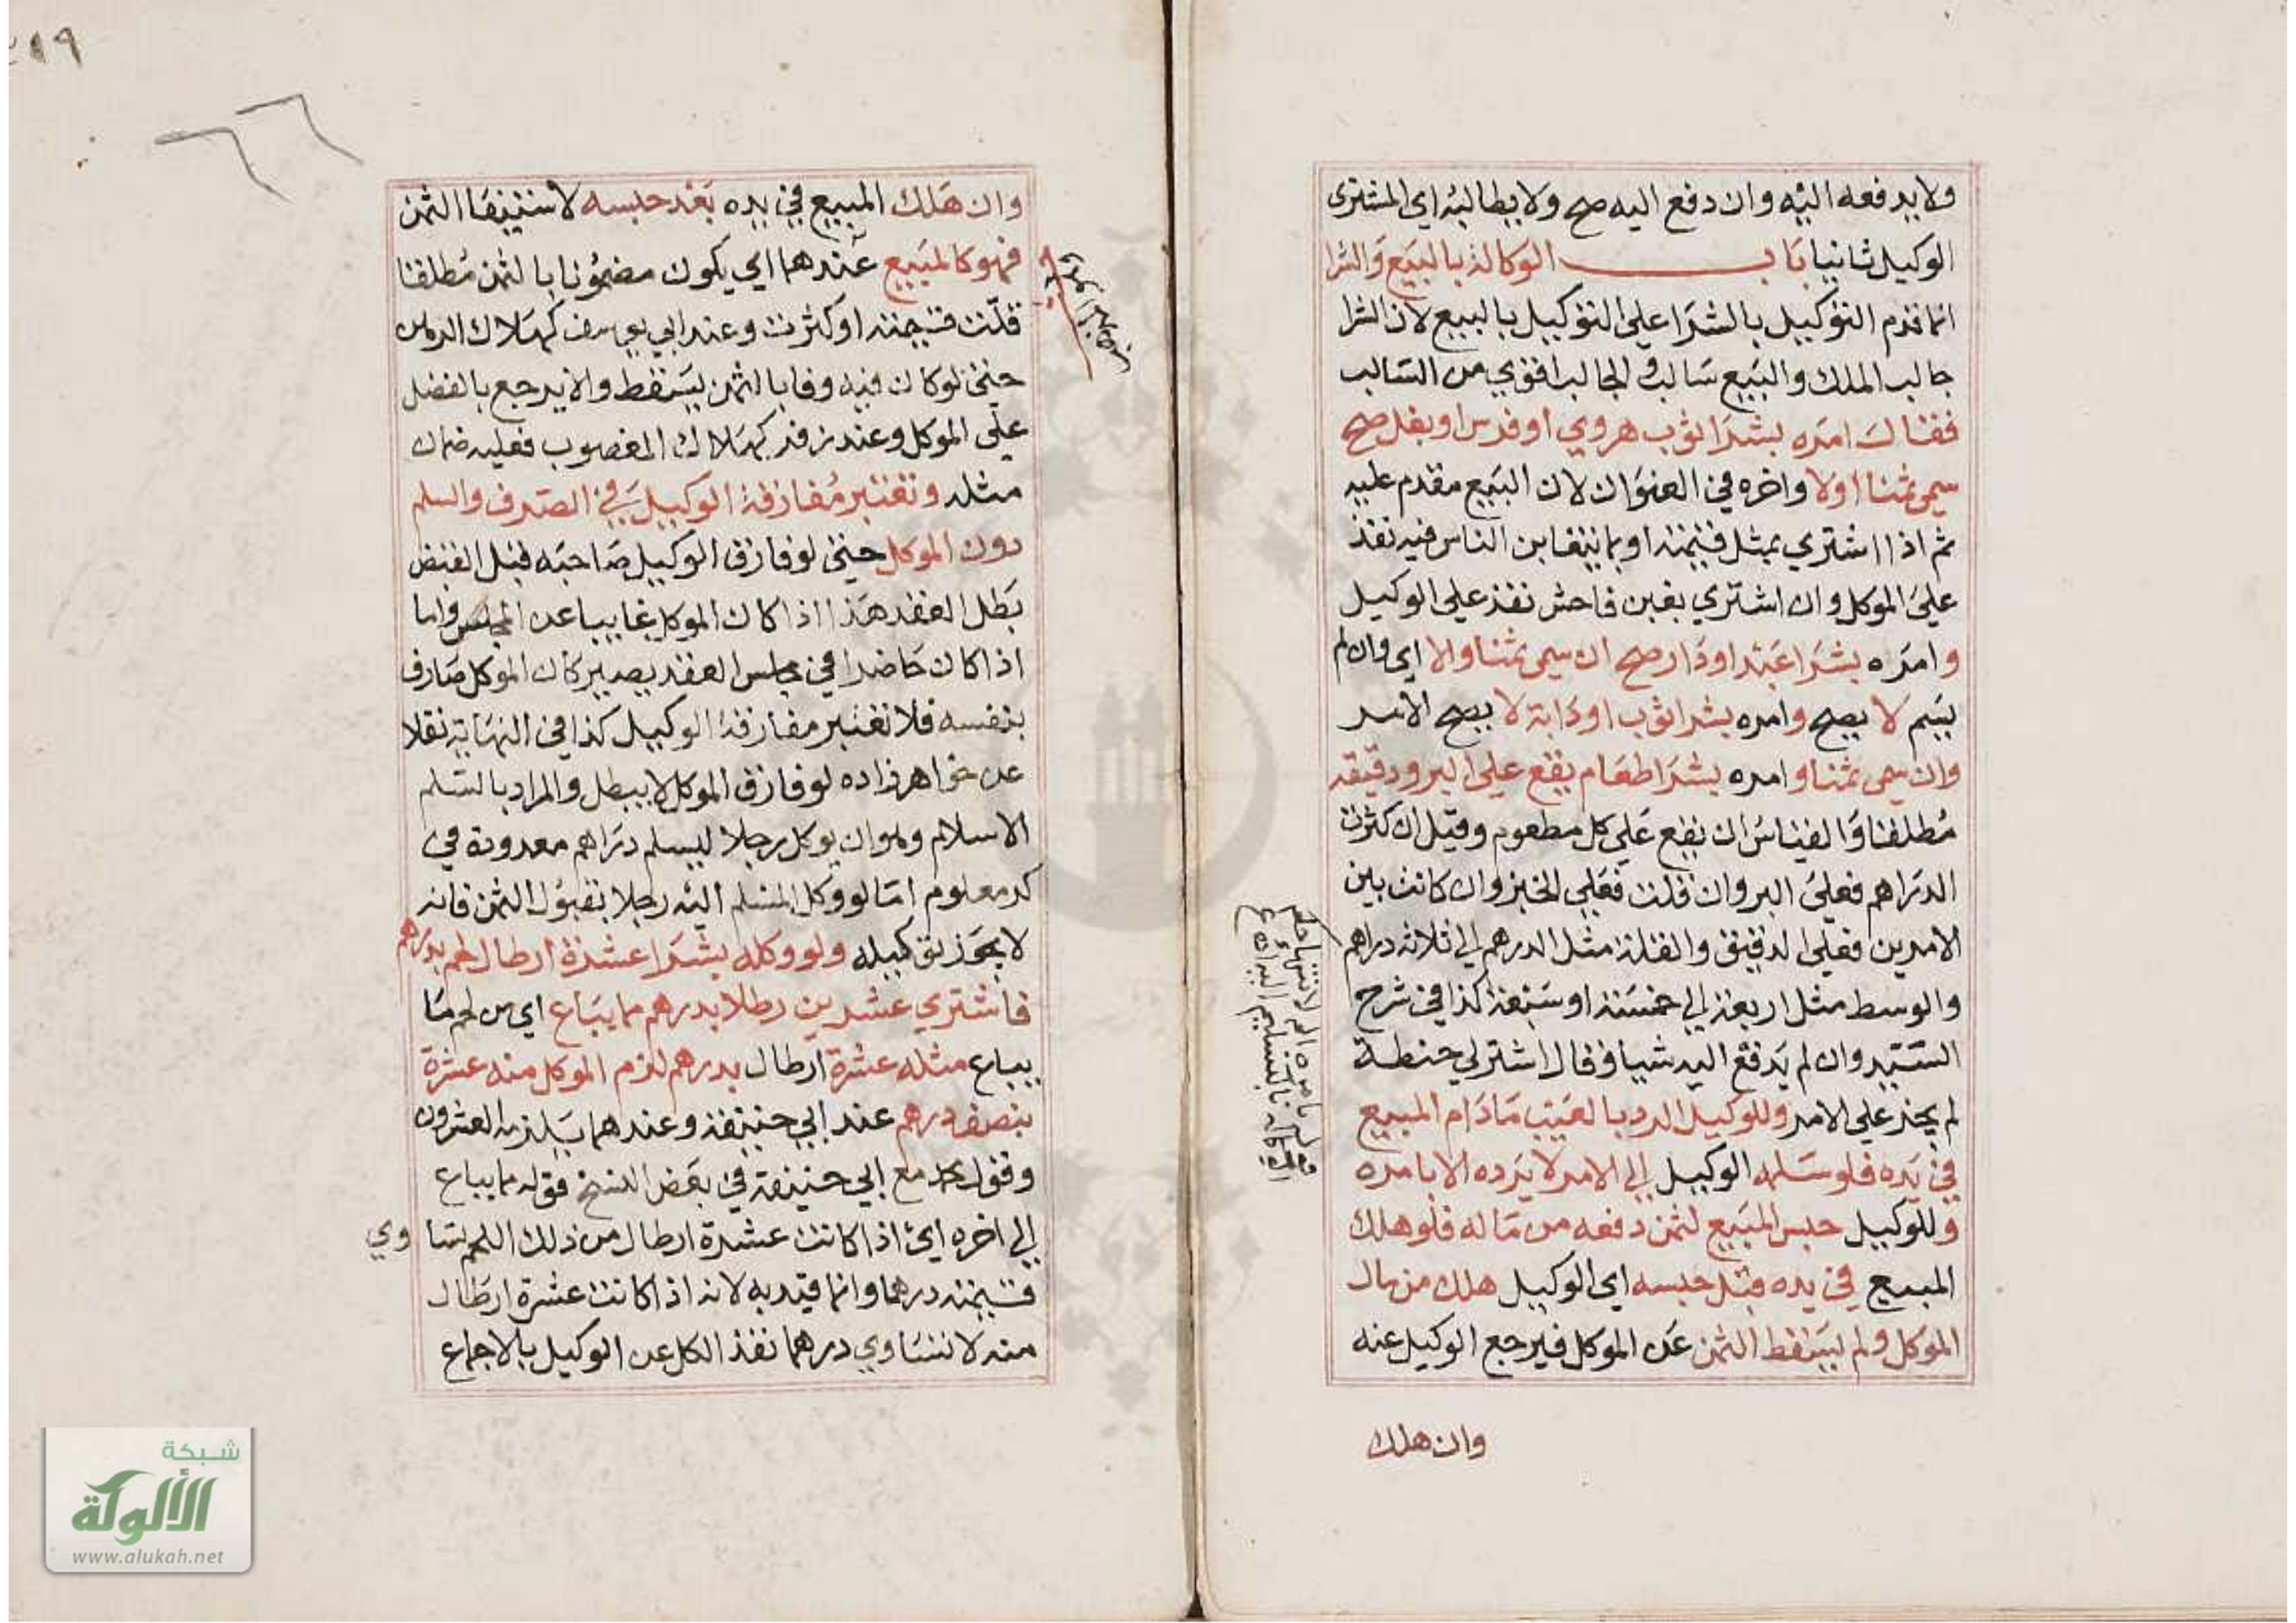 ولا يدفعه اليه وان دفع اليه صح ولا يطالبه اي المشتري
الوكيل ثانيا باب الوكالة بالبيع والشرا
انما قدم التوكيل بالشرا على التوكيل بالبيع لان الشرا
جالب الملك والبيع سالب والجالب اقوي من السالب
فقال امره بشرا ثوب هروي او فرس او بغل صح
سمي ثمنا او لا واخره في العنوان لان البيع مقدم عليه
ثم اذا اشتري بمثل قيمته او بما يتغابن الناس فيه نفذ
علي الموكل وان اشتري بغبن فاحش نفذ علي الوكيل
وامره بشرا عبد او دار صح ان سمي ثمنا والا اي وان لم
يسم لا يصح وامره بشرا ثوب او دابة لا يصح الامر
وان سمي ثمنا وامره بشرا طعام يقع علي البر ودقيقه
مطلقا والقياس ان يقع علي كل مطعوم وقيل ان كثرت
الدراهم فعلي البر وان قلت فعلي الخبز وان كانت بين
الامرين فعلي الدقيق والقلة مثل الدرهم الي ثلاثة دراهم
والوسط مثل اربعة الي خمسة او سبعة كذا في شرح
السيد وان لم يدفع اليه شيا وقال اشتر لي حنطة
لم يجز علي الامر وللوكيل الرد بالعيب ما دام المبيع
في يده فلو سلمه الوكيل الي الامر لا يرده الا بامره
وللوكيل حبس المبيع لثمن دفعه من ماله فلو هلك
المبيع في يده قبل حبسه اي الوكيل هلك من مال
الموكل ولم يسقط الثمن عن الموكل فيرجع الوكيل عنه
وان هلك
لانتها حكم
الوكالة بالتسليم اليه
٤١٩
٦٦
وان هلك المبيع في يده بعد حبسه لاستيفا الثمن
فهو كالمبيع عندهما اي يكون مضمونا بالثمن مطلقا
قلت قيمته او كثرت وعند ابي يوسف كهلاك الرهن
حتي لو كان فيه وفا بالثمن يسقط والا يرجع بالفضل
علي الموكل وعند زفر كهلاك المغصوب فعليه ضمان
مثله وتعتبر مفارقة الوكيل في الصرف والسلم
دون الموكل حتي لو فارق الوكيل صاحبه قبل القبض
بطل العقد هذا اذا كان الموكل غايبا عن المجلس واما
اذا كان حاضرا في مجلس العقد يصير كان الموكل صارف
بنفسه فلا تعتبر مفارقة الوكيل كذا في النهاية نقلا
عن خواهرزاده لو فارق الموكل لا يبطل والمراد بالسلم
الاسلام وهو ان يوكل رجلا ليسلم دراهم معدودة في
كر معلوم اما لو وكل المسلم اليه رجلا بقبول الثمن فانه
لا يجوز توكيله ولو وكله بشرا عشرة ارطال لحم بدرهم
فاشتري عشرين رطلا بدرهم مما يباع اي من لحم ما
يباع مثله عشرة ارطال بدرهم لزم الموكل منه عشرة
بنصف درهم عند ابي حنيفة وعندهما يلزمه العشرون
وقول محمد مع ابي حنيفة في بعض النسخ قوله مما يباع
الي اخره اي اذا كانت عشرة ارطال من ذلك اللحم تساوي
قيمته درهما وانما قيد به لانه اذا كانت عشرة ارطال
منه لا تساوي درهما نفذ الكل عن الوكيل بالاجماع
شبكة
الألوكة
www.alukah.net